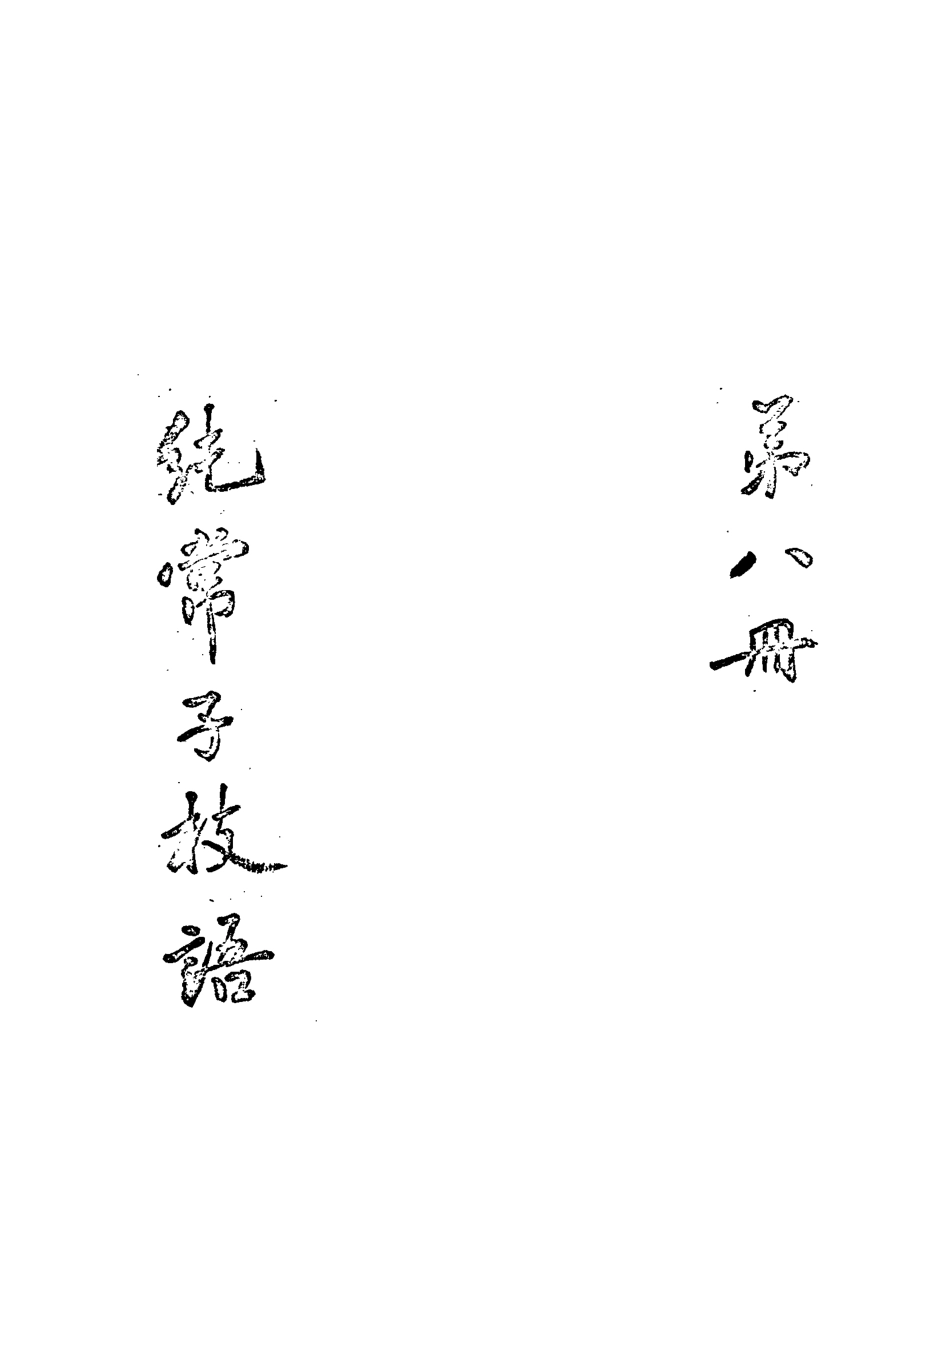 弟八冊
純常子枝語